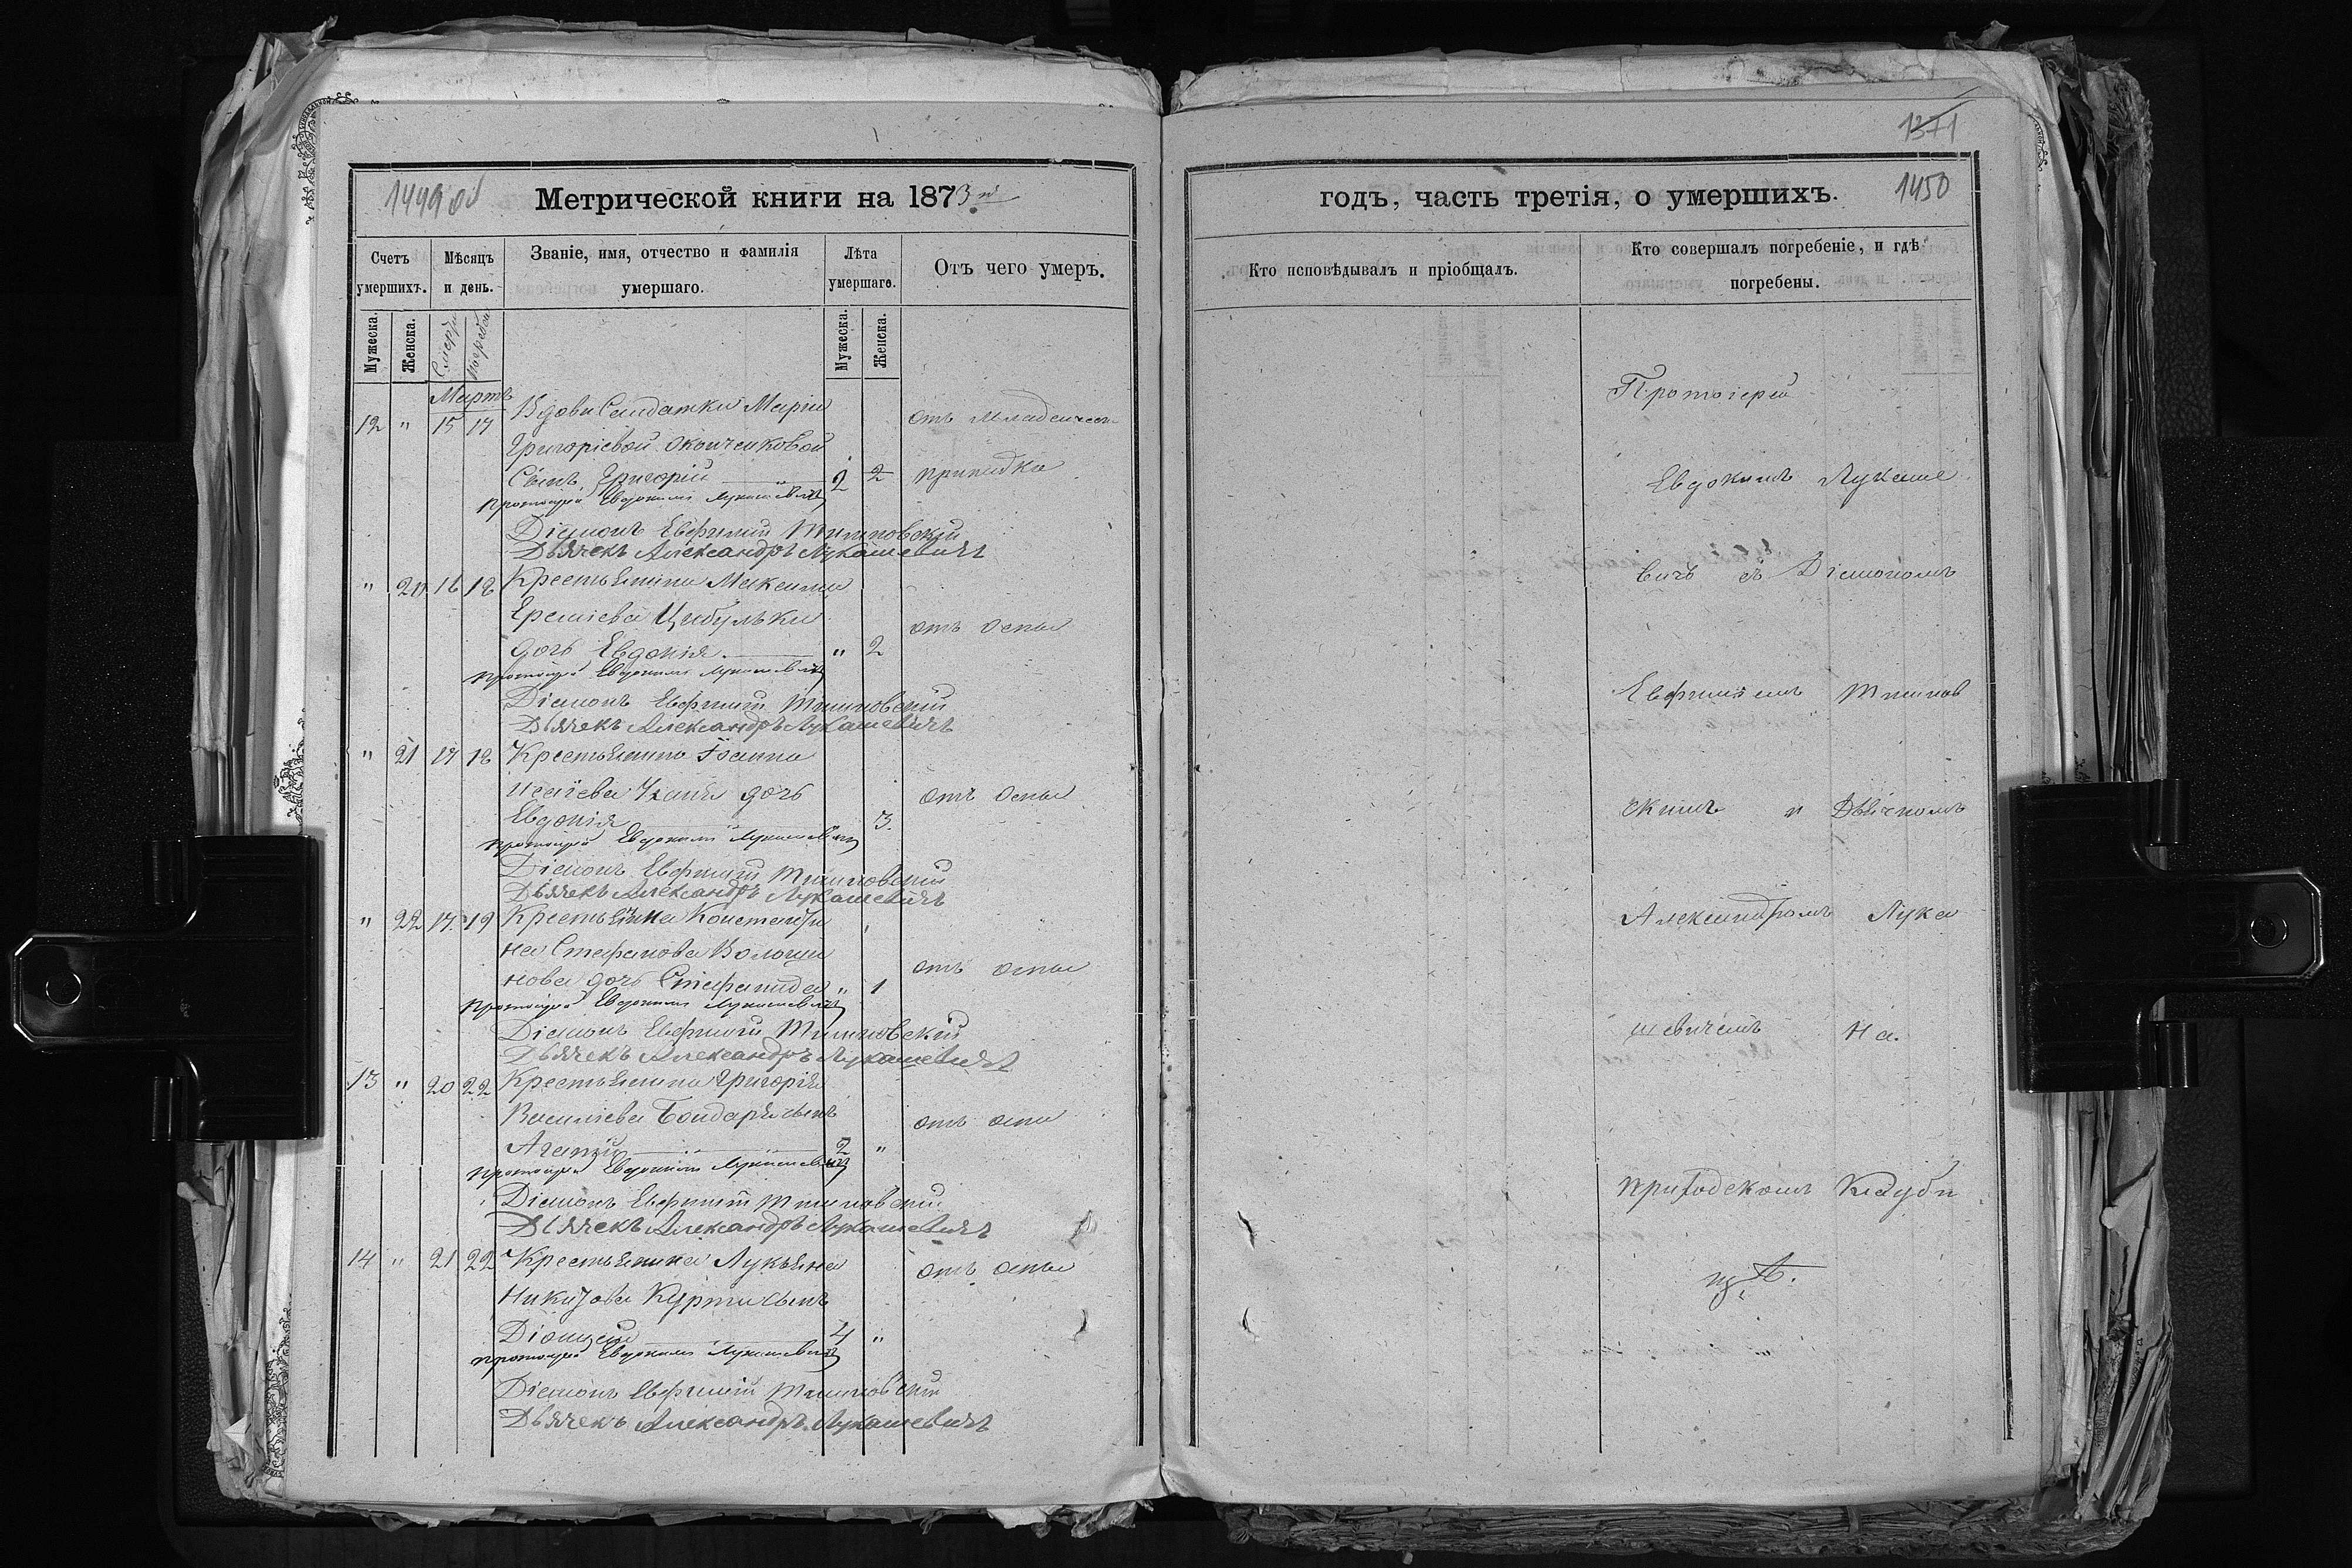 1371
1499 об
Метрической книги на 1873й
годъ, часть третія, о умершихъ.
1450
Счетъ умершихъ.
Мѣсяцъ и день.
Званіе, имя, отчество и фамилія умершаго.
Лѣта умершаго.
Отъ чего умеръ.
Мужеска.
Женска.
Мужеска.
Женска.
Мартъ
12 " 15 17 Вдовы Салдатки Маріи
отъ младенчес-
Григоріевой
Сынъ Григорій 2 2 припадка
Протоіерей Евдокимъ Лукашевичъ
Діяконъ Евфимій
Дьячекъ Александръ Лукашевичъ
" 20 16 18 Крестьянина Максима
Цыбульки
отъ оспы
дочь Евдокія " 2
Протоіерей Евдокимъ Лукашевичъ
Діяконъ Евфимій
Дьячекъ Александръ Лукашевичъ
" 21 17 18 Крестьянина Іоанна
дочь
отъ оспы
Евдокія 3.
Протоіерей Евдокимъ Лукашевичъ
Діяконъ Евфимій
Дьячекъ Александръ Лукашевичъ
" 22 17 19 Крестьянина Константи
на Стефанова Волощи
отъ оспы
нова дочь Стефанида " 1
Протоіерей Евдокимъ Лукашевичъ
Діяконъ Евфимій
Дьячекъ Александръ Лукашевичъ
13 " 20 22 Крестьянина Григорія
Василіева Бондаря сынъ
отъ оспы
Агапій 2 "
Протоіерей Евдокимъ Лукашевичъ
Діяконъ Евфимій
Дьячекъ Александръ Лукашевичъ
14 " 21 22 Крестьянина Лукьяна
отъ оспы
сынъ
Діонисій 4 "
Протоіерей Евдокимъ Лукашевичъ
Діяконъ Евфимій
Дьячекъ Александръ Лукашевичъ
Кто исповѣдывалъ и пріобщалъ.
Кто совершалъ погребеніе, и гдѣ
погребены.
Протоіерей
Евдокимъ Лукаше
вичъ съ Діякономъ
Евфиміемъ
скимъ и Дьячкомъ
Александромъ Лука
шевичемъ на
приходскомъ кладби
щѣ.